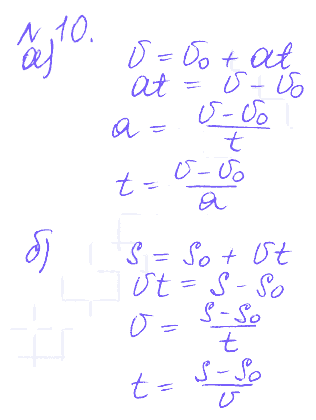 № 10.
а) υ = υ₀ + at
at = υ - υ₀
a = (υ - υ₀)/t
t = (υ - υ₀)/a
б) s = s₀ + υt
υt = s - s₀
υ = (s - s₀)/t
t = (s - s₀)/υ